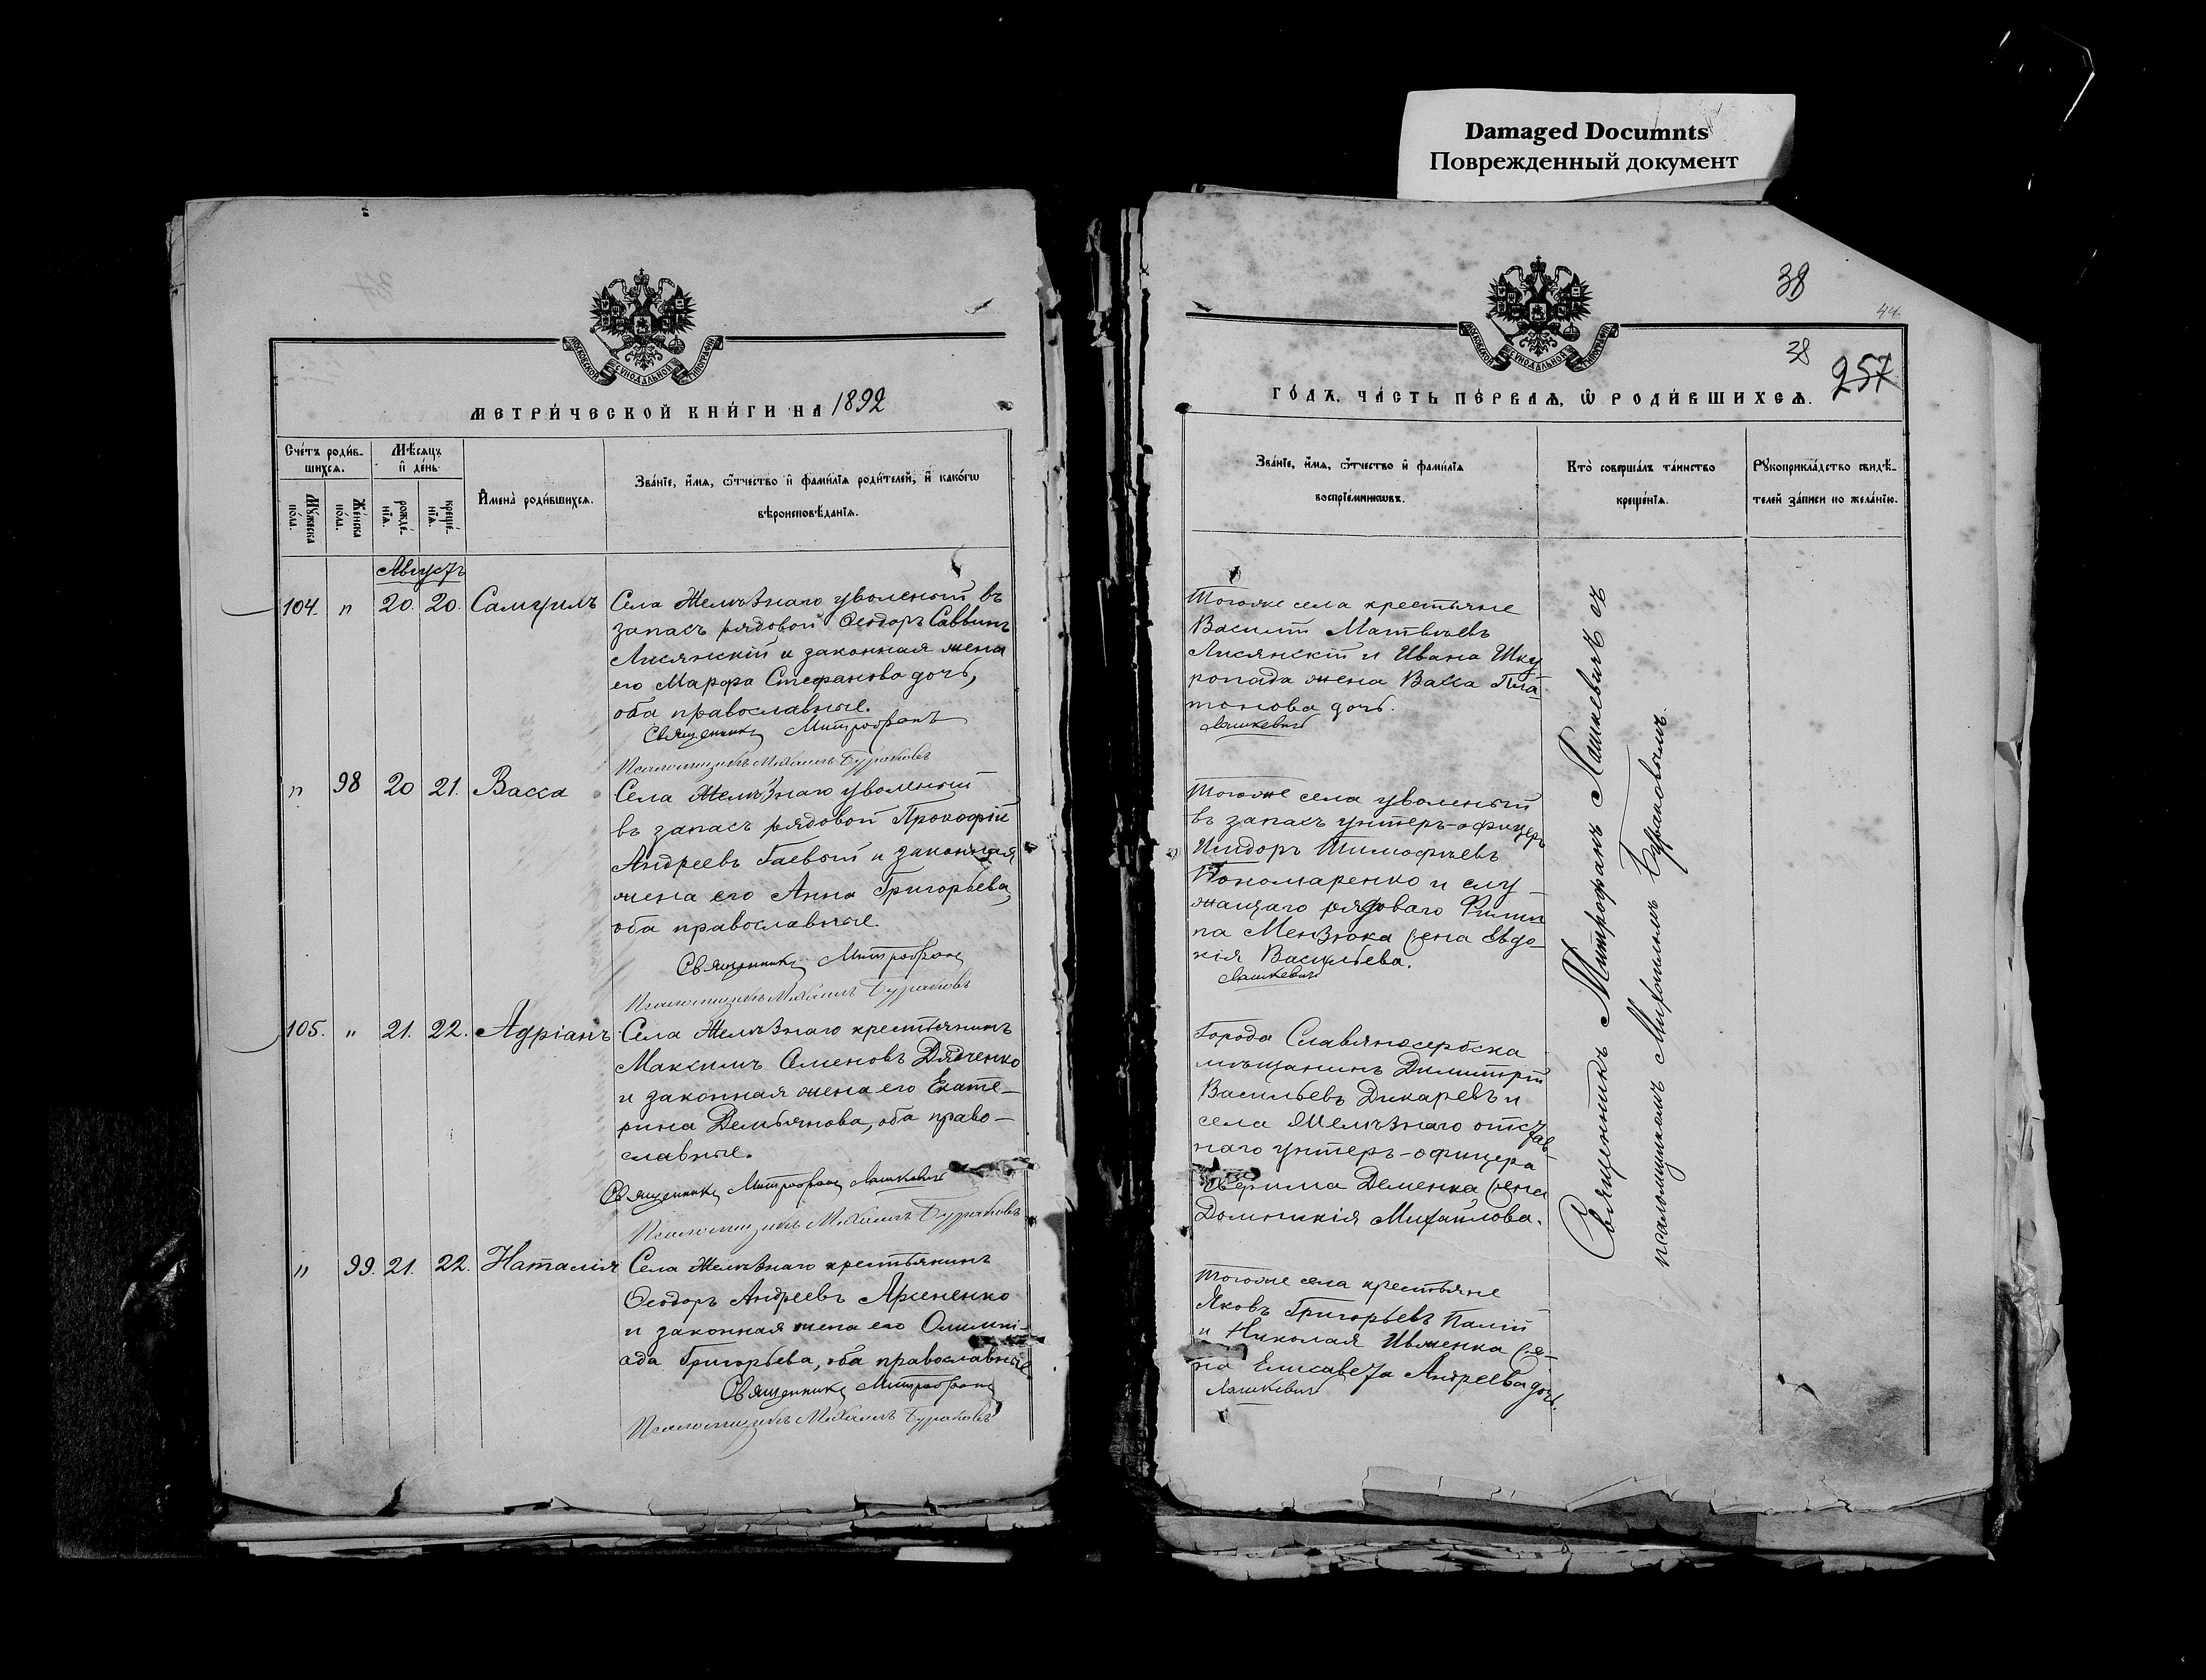 Damaged Documnts
Поврежденный документ
МОСКОВСКОЙ СѴНОДАЛЬНОЙ ТИПОГРАФІИ
МЕТРИ́ЧЕСКОЙ КНИ́ГИ НА 1892
Сче́тъ роди́в-
шихсѧ.
Мѣ́сѧцъ
и҆ де́нь
Мꙋ́жеска
по́ла.
Же́нска
по́ла.
рожде́-
нїѧ.
креще́-
нїѧ.
И҆мена̀ роди́вшихсѧ.
Зва́нїе, и҆́мѧ, ѻ҆́тчество и҆ фами́лїѧ роди́телей, и҆ како́гѡ
вѣроисповѣ́данїѧ.
Августъ
104. " 20. 20. Самуилъ
Села Желѣзнаго уволеный въ
запасъ рядовой Ѳеодоръ Саввинъ
Лисянскій и законная жена
его Марфа Стефанова дочь,
оба православные.
Священникъ Митрофанъ
Псаломщикъ Михаилъ Бураковъ
" 98 20 21. Васса
Села Желѣзнаго уволеный
въ запасъ рядовой Прокофій
Андреевъ Гаевой и законная
жена его Анна Григорьева,
оба православные.
Священникъ Митрофанъ
Псаломщикъ Михаилъ Бураковъ
105. " 21. 22. Адріанъ
Села Желѣзнаго крестьянинъ
Максимъ Семеновъ Дядченко
и законная жена его Екате-
рина Демьянова, оба право-
славные.
Священникъ Митрофанъ Лашкевичъ
Псаломщикъ Михаилъ Бураковъ
" 99. 21. 22. Наталія
Села Желѣзнаго крестьянинъ
Ѳеодоръ Андреевъ
и законная жена его Олимпі-
ада Григорьева, оба православные
Священникъ Митрофанъ
Псаломщикъ Михаилъ Бураковъ
38
44.
МОСКОВСКОЙ СѴНОДАЛЬНОЙ ТИПОГРАФІИ
38
257
ГО́ДЪ, ЧА́СТЬ ПЕ́РВАѦ, Ѡ҆ РОДИ́ВШИХСѦ.
Зва́нїе, и҆́мѧ, ѻ҆́тчество и҆ фами́лїѧ
воспрїе́мникѡвъ.
Кто̀ соверша́лъ та́инство
креще́нїѧ.
Рꙋкоприкла́дство свидѣ́-
телей за́писи по жела́нїю.
Тогоже села крестьяне
Василій Матвѣевъ
Лисянскій и Ивана Шку
ропада жена Васса Пла-
тонова дочь.
Лашкевичъ
Тогоже села уволеный
въ запасъ унтеръ-офицеръ
Исидоръ Тимофѣевъ
Пономаренко и слу-
жащаго рядоваго Филип
па Мензюка жена Евдо-
кія Васильева.
Лашкевичъ
Города Славяносербска
мѣщанинъ Димитрій
Васильевъ Дикаревъ и
села Желѣзнаго отстав-
наго унтеръ-офицера
Ефима Деменка жена
Домникія Михайлова.
Тогоже села крестьяне
Яковъ Григорьевъ Палій
и Николая Ивженка же-
на Елисавета Андреева дочь.
Лашкевичъ
Священникъ Митрофанъ Лашкевичъ съ
псаломщикомъ Михаиломъ Бураковымъ.